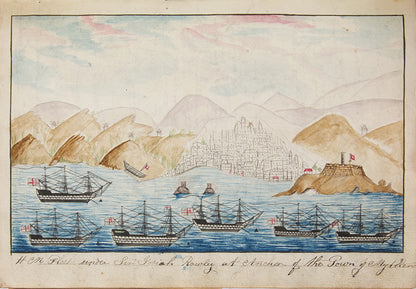 H M Fleet under Sir Josiah Rowley at Anchor of the Town of